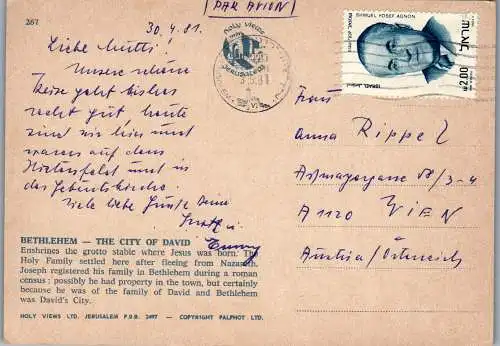 267
(PAR AVION)
30.4.81.
Liebe Mutti!
Unsere schöne
Reise geht bisher
recht gut, heute
sind wir hier und
waren auf dem
Hirtenfeld und in
der Geburtskirche.
Viele liebe Grüße Deine
Emmy
holy views
JERUSALEM
SHMUEL YOSEF AGNON
ISRAEL
ישראל
2.00
Frau
Anna Rippel
58/3-4
A 1120 WIEN
Austria/Österreich
BETHLEHEM — THE CITY OF DAVID
Enshrines the grotto stable where Jesus was born. The
Holy Family settled here after fleeing from Nazareth.
Joseph registered his family in Bethlehem during a roman
census : possibly he had property in the town, but certainly
because he was of the family of David and Bethlehem
was David's City.
HOLY VIEWS LTD. JERUSALEM P.O.B. 2497 — COPYRIGHT PALPHOT LTD.